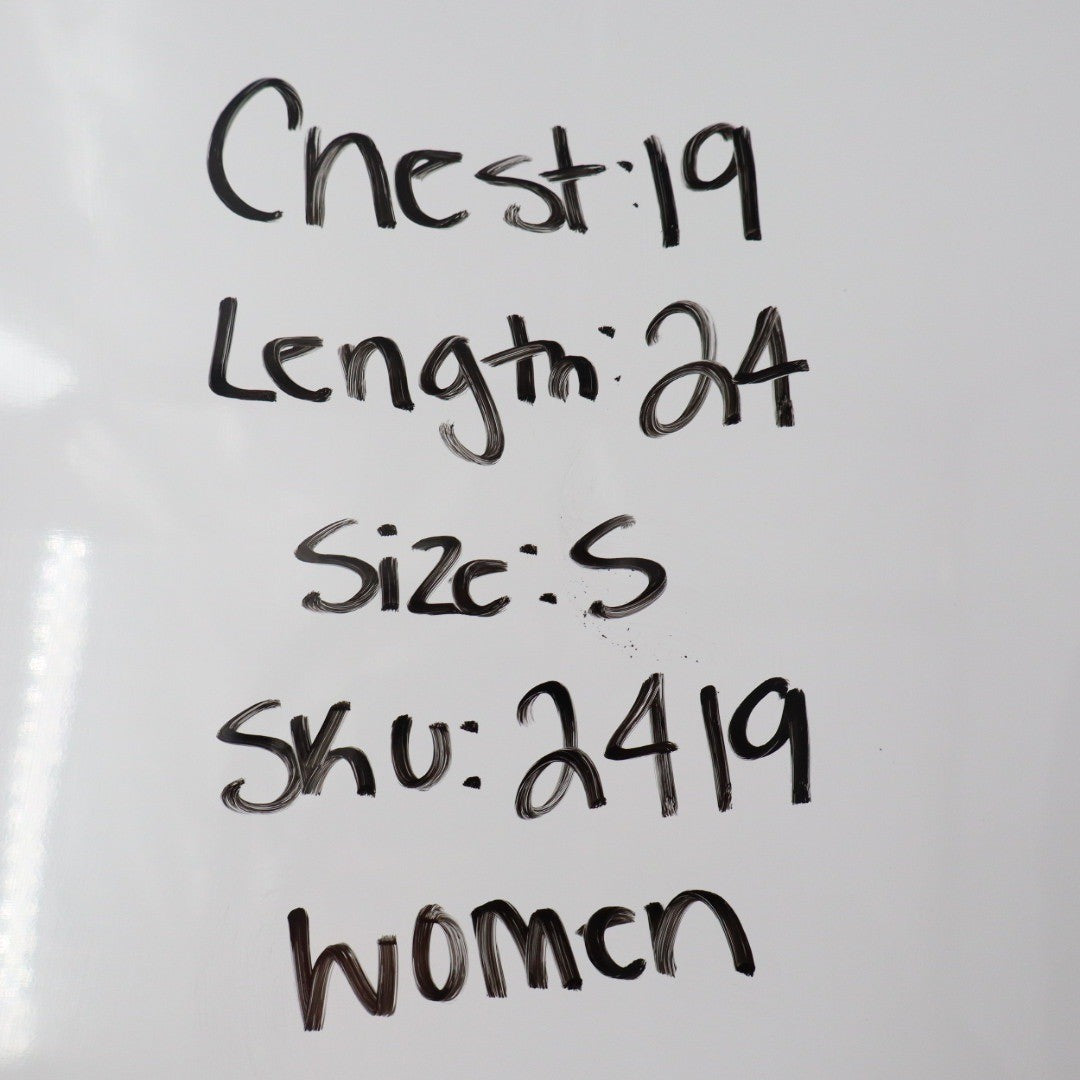 Chest: 19
Length: 24
Size: S
SKU: 2419
Women